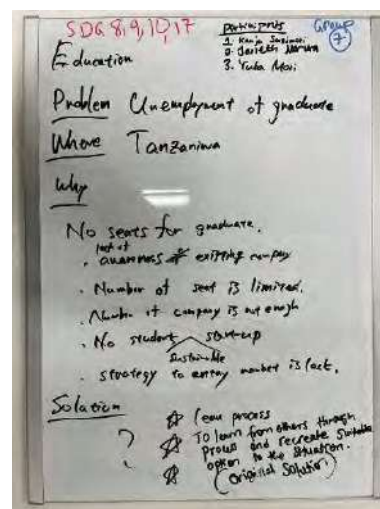 SDG 8,9,10,17
participants
Group 7
1. Kenja
2. Janeth
3. Yuta Mori
Education
Problem Unemployment of graduate
Where Tanzania
Why
No seats for graduate.
lack of
. awareness of existing company
. Number of seat is limited.
. Number of company is not enough
. No student start-up
Sustainable
. strategy to entry market is lack.
Solution
?
☆ lean process
☆ To learn from others through
and recreate suitable
option to the situation.
☆ (Original Solution)